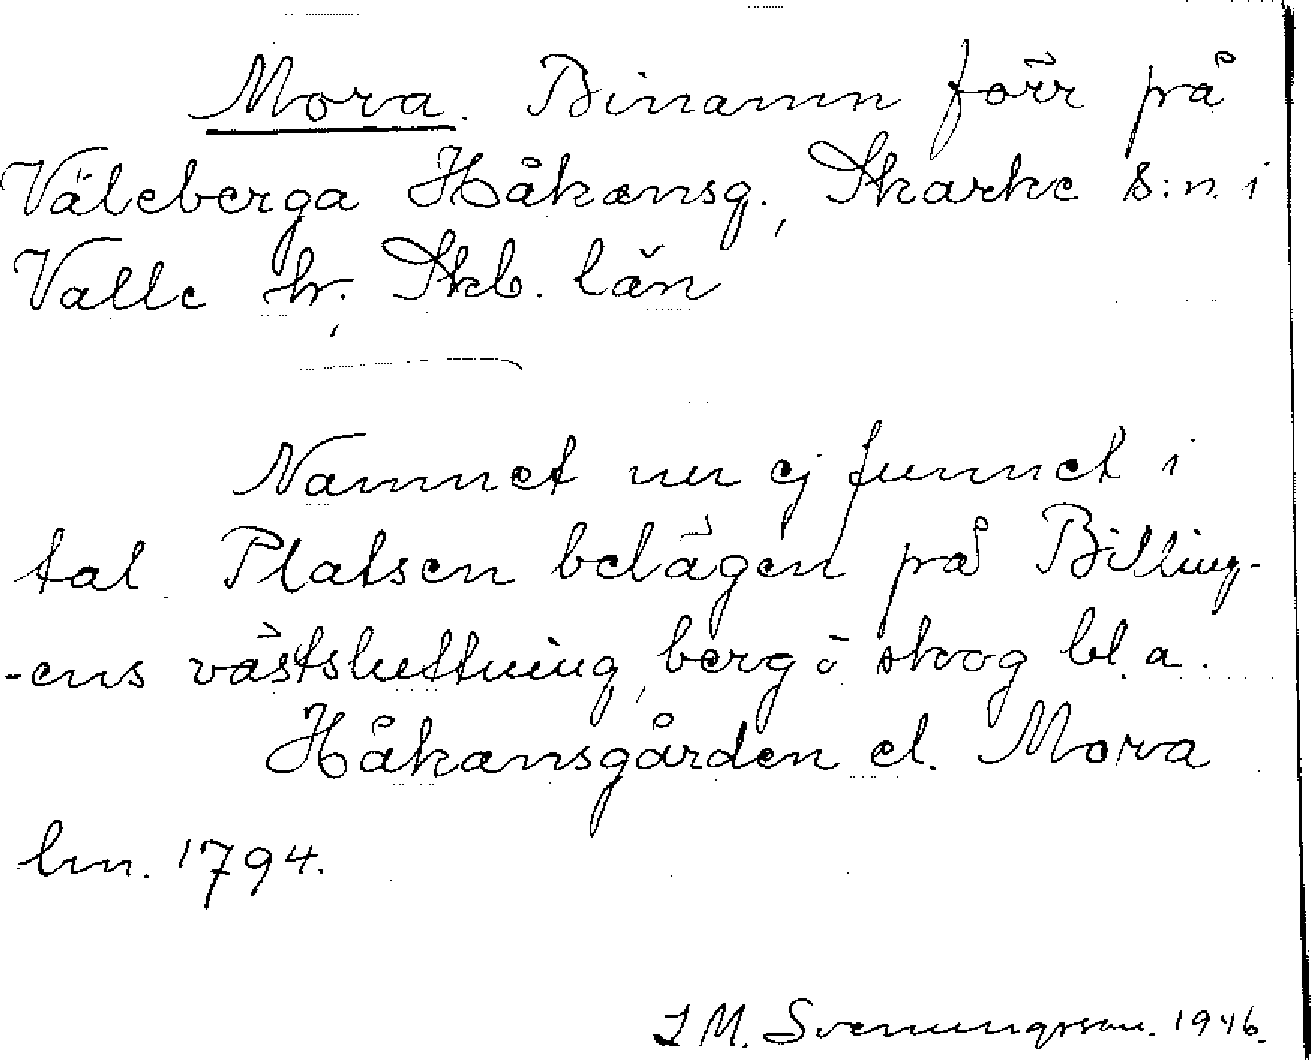 Mora. Binamn förr på
Väleberga Håkansg., Skarke s:n i
Valle hr, Skb. län
Namnet nu ej funnet i
tal. Platsen belägen på Billing-
-ens västsluttning, berg o skog bl.a.
Håkansgården el. Mora
lm. 1794.
J M. Svenungsson. 1946.